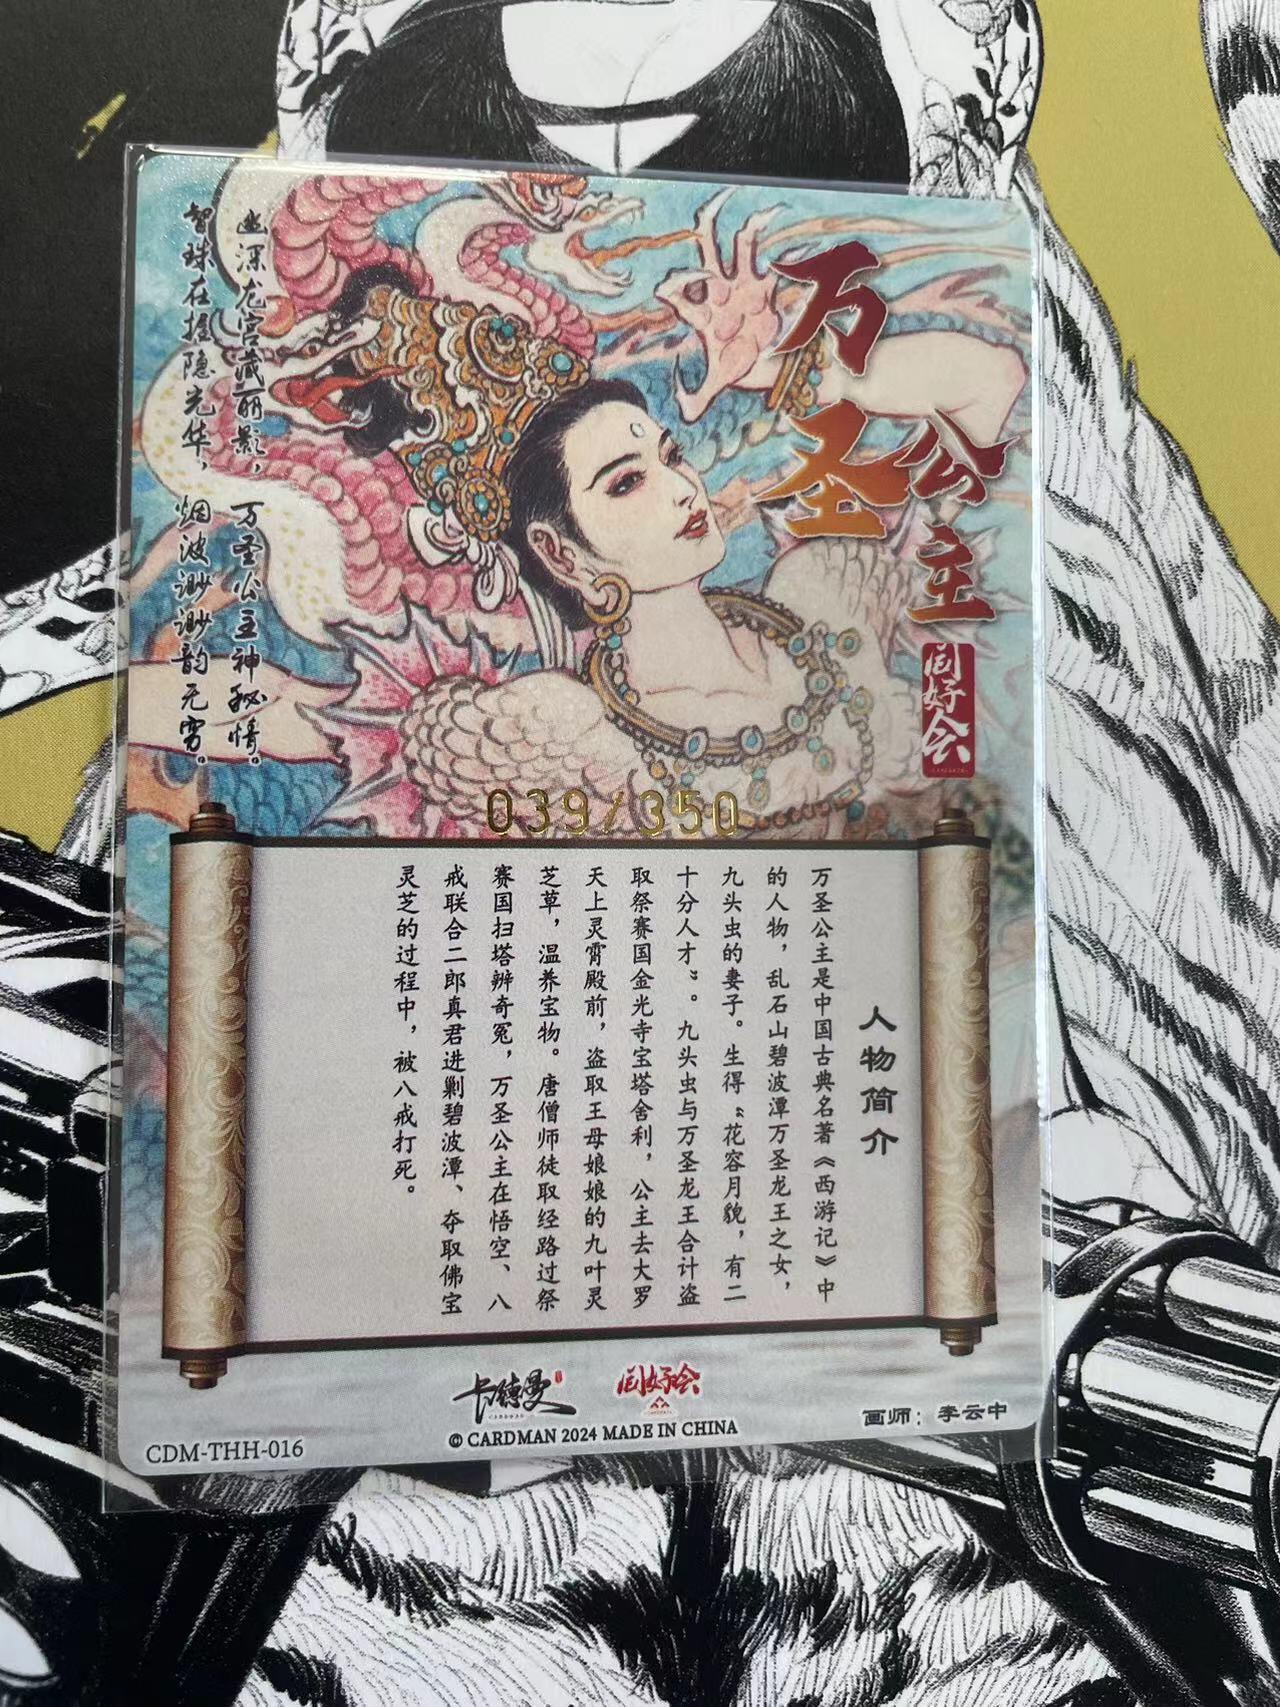 万圣
公主
同好会
幽深龙宫藏丽影，万圣公主神秘情。
智珠在握隐光华，烟波渺渺韵无穷。
039/350
人物简介
万圣公主是中国古典名著《西游记》中
的人物，乱石山碧波潭万圣龙王之女，
九头虫的妻子。生得“花容月貌，有二
十分人才”。九头虫与万圣龙王合计盗
取祭赛国金光寺宝塔舍利，公主去大罗
天上灵霄殿前，盗取王母娘娘的九叶灵
芝草，温养宝物。唐僧师徒取经路过祭
赛国扫塔辨奇冤，万圣公主在悟空、八
戒联合二郎真君进剿碧波潭、夺取佛宝
灵芝的过程中，被八戒打死。
卡德曼
CARDMAN
同好会
© CARDMAN 2024 MADE IN CHINA
画师：李云中
CDM-THH-016